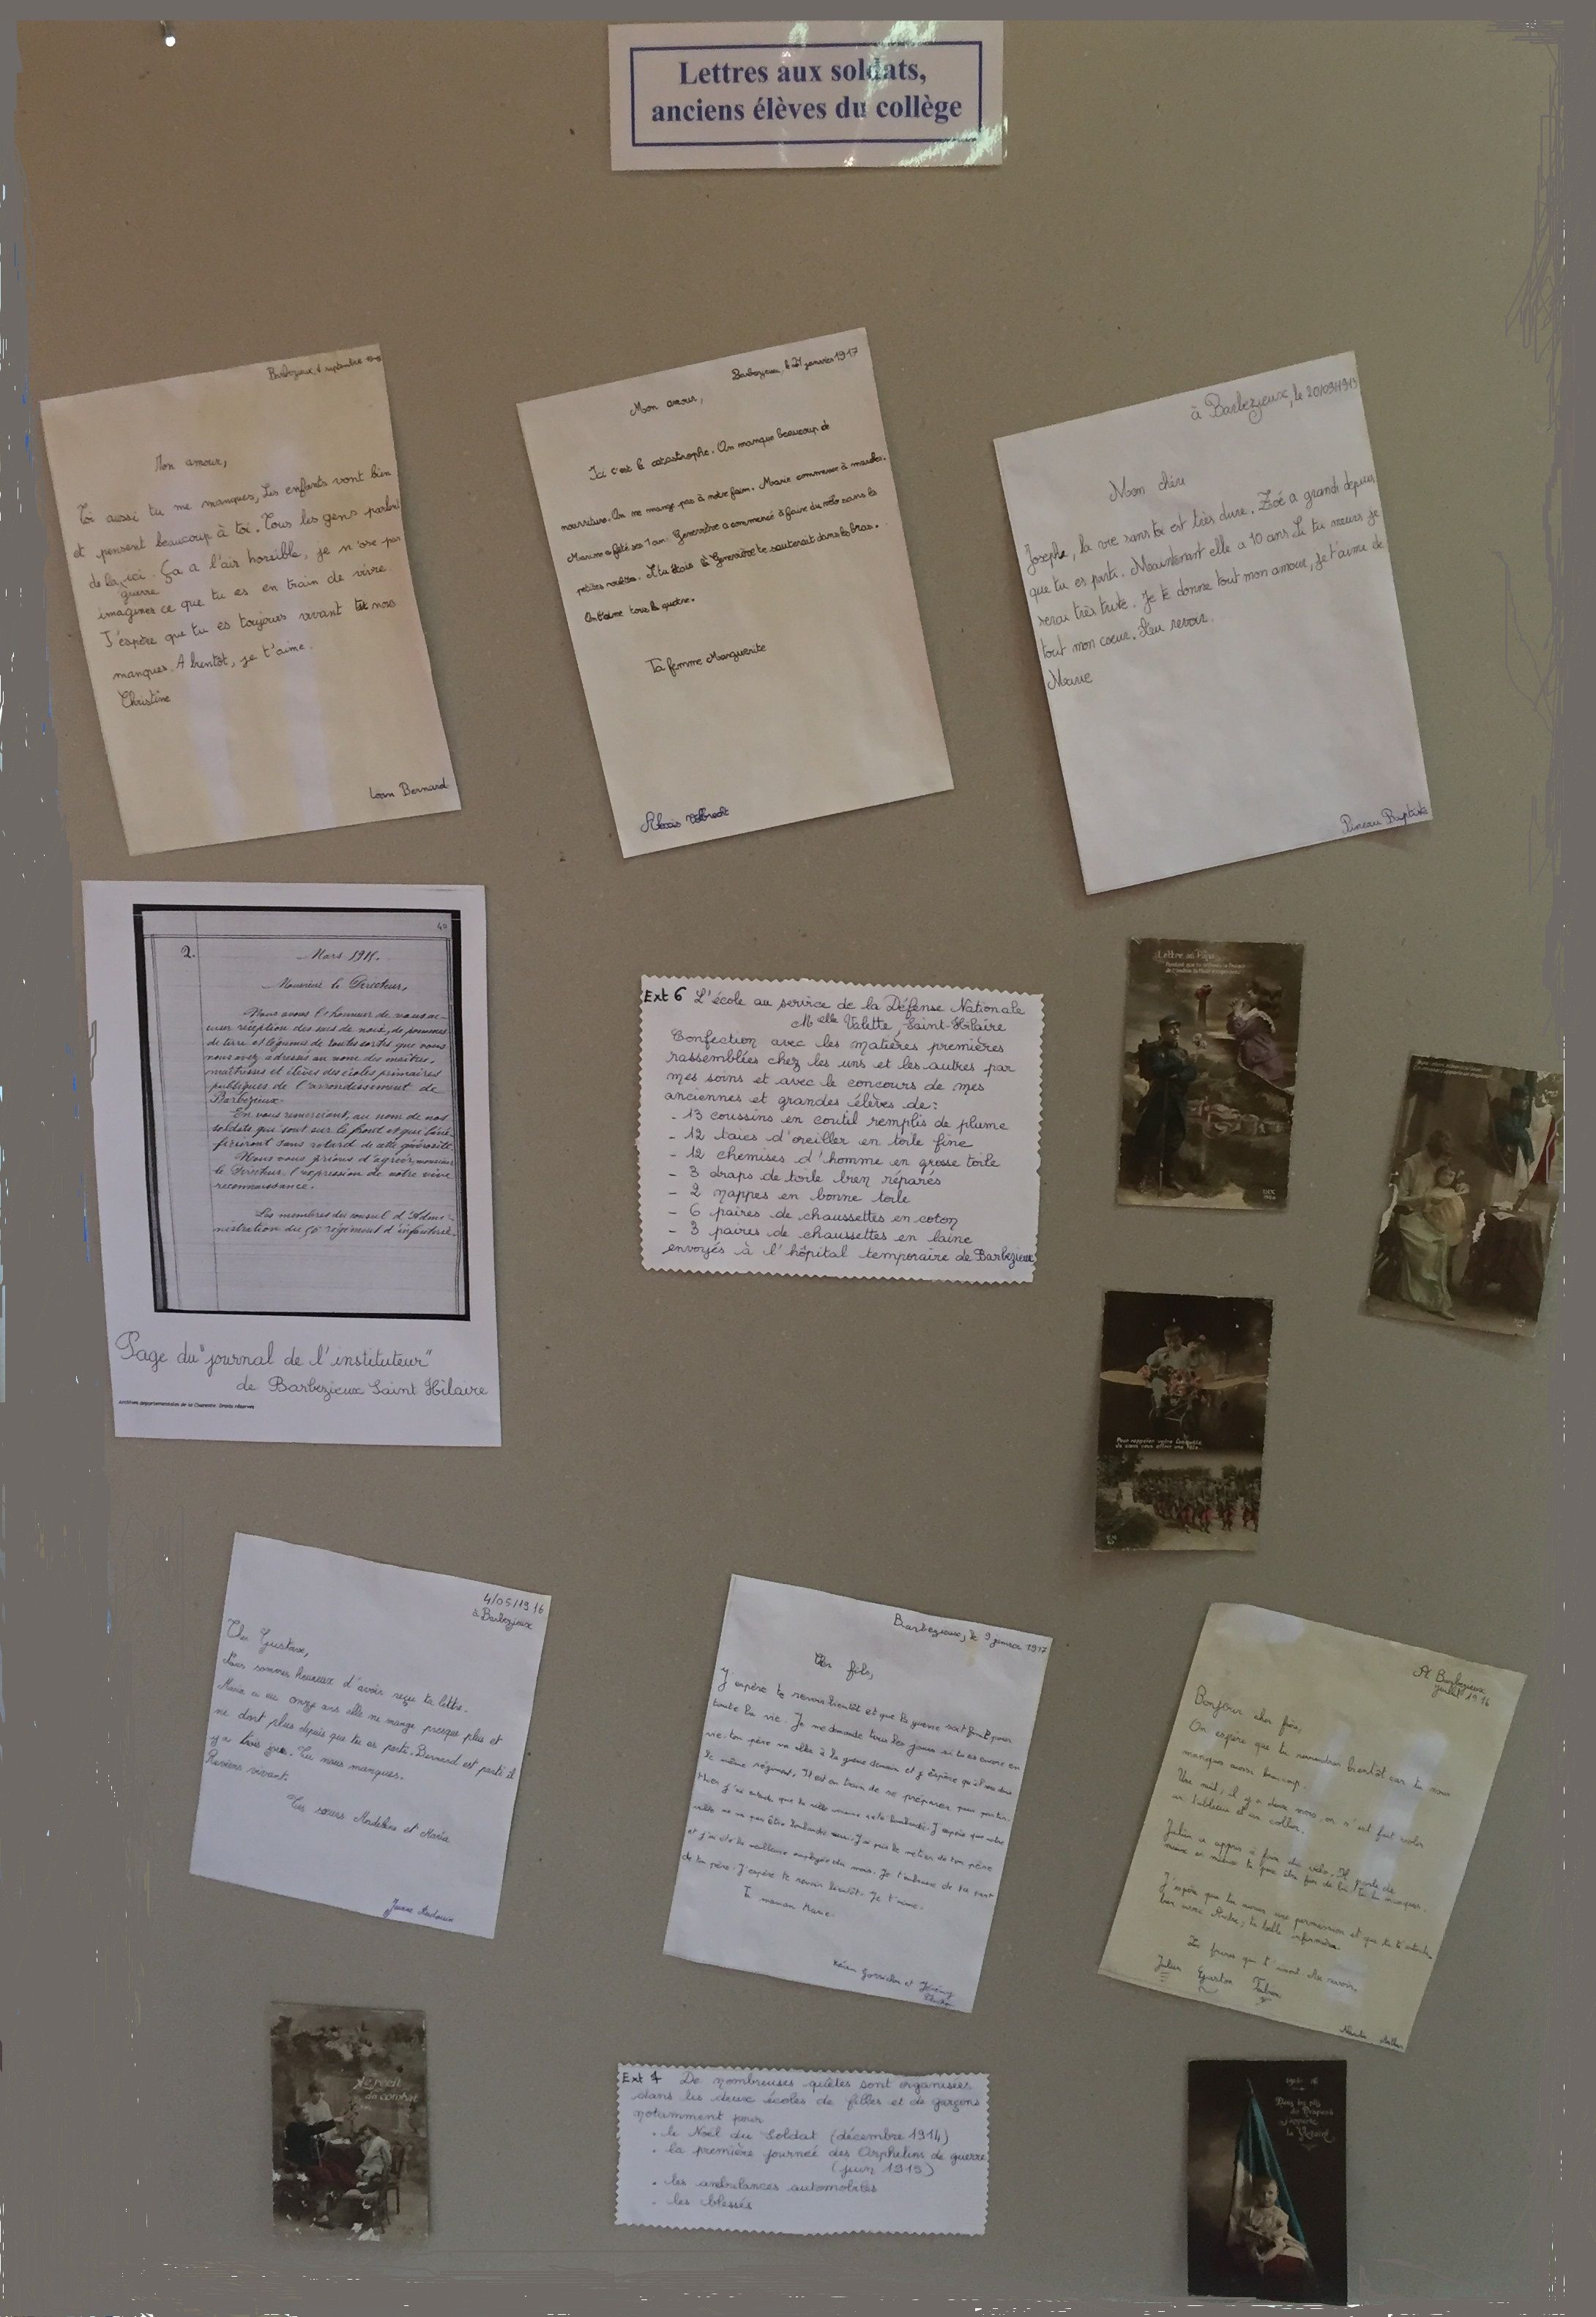 Lettres aux soldats,
anciens élèves du collège
Barbezieux, septembre
Mon amour,
Toi aussi tu me manques, Les enfants vont bien
et pensent beaucoup à toi. Tous les gens parlent
de la ici. Ça a l'air horrible, je n'ose pas
guerre
imaginer ce que tu es en train de vivre.
J'espère que tu es toujours vivant tu nous
manques. A bientôt, je t'aime.
Christine
Loan Bernard
Barbezieux, le 21 janvier 1917
Mon amour,
Ici c'est la catastrophe. On manque beaucoup de
nourriture. On ne mange pas à notre faim. Marie commence à marcher.
Maxime a fêté ses 1 an. Geneviève a commencé à faire du vélo sans les
petites roulettes. Si tu étais là Geneviève te sauterait dans les bras.
On t'aime tous les quatre.
Ta femme Marguerite
Alexis
à Barbezieux, le 20/09/1915
Mon chéri
Josephe, la vie sans toi est très dure. Zoé a grandi depuis
que tu es parti. Maintenant elle a 10 ans. Si tu meurs je
serai très triste. Je te donne tout mon amour, je t'aime de
tout mon coeur. Au revoir.
Marie
Pineau Baptiste
40
2.
Mars 1915.
Monsieur le Directeur,
Nous avons l'honneur de vous ac-
cuser réception des sacs de noix, de pommes
de terre et légumes de toutes sortes que vous
nous avez adressés au nom des maîtres,
maîtresses et élèves des écoles primaires
publiques de l'arrondissement de
Barbezieux.
En vous remerciant, au nom de nos
soldats qui sont sur le front et qui béné-
ficieront sans retard de cette générosité
Nous vous prions d'agréer, monsieur
le Directeur, l'expression de notre vive
reconnaissance.
Les membres du conseil d'Admi-
nistration du 50e régiment d'infanterie.
Page du "journal de l'instituteur"
de Barbezieux Saint Hilaire
Archives départementales de la Charente. Droits réservés
Ext 6 L'école au service de la Défense Nationale
Melle Valette, Saint-Hilaire
Confection avec les matières premières
rassemblées chez les uns et les autres par
mes soins et avec le concours de mes
anciennes et grandes élèves de:
- 13 coussins en coutil remplis de plume
- 12 taies d'oreiller en toile fine
- 12 chemises d'homme en grosse toile
- 3 draps de toile bien réparés
- 2 nappes en bonne toile
- 6 paires de chaussettes en coton
- 3 paires de chaussettes en laine
envoyés à l'hôpital temporaire de Barbezieux
Lettre au Papa
4/05/1916
à Barbezieux
Cher Gustave,
Nous sommes heureux d'avoir reçu ta lettre.
Maria a eu onze ans elle ne mange presque plus et
ne dort plus depuis que tu es parti. Bernard est parti il
y a trois jours. Tu nous manques.
Reviens vivant.
Tes soeurs Madeleine et Maria
Barbezieux, le 9 janvier 1917
Cher fils,
J'espère te revoir bientôt et que la guerre soit finit pour
toute la vie. Je me demande tous les jours si tu es encore en
vie. ton père va aller à la guerre demain et j'espère qu'il sera dans
le même régiment. Il est en train de se préparer pour partir.
Hier j'ai entendu que la ville voisine a été bombardé. J'espère que notre
ville ne va pas être bombardé aussi. J'ai pris le métier de ton père
et j'ai été la meilleure employée du mois. Je t'embrasse de la part
de ton père. J'espère te revoir bientôt. Je t'aime.
Ta maman Marie.
A Barbezieux,
juillet 1916
Bonjour cher frère,
On espère que tu reviendras bientôt car tu nous
manques aussi beaucoup.
Une nuit, il y a deux mois, on s'est fait voler
un tableau et un collier.
Julien a appris à faire du vélo. Il parle de
J'espère que tu auras une permission et que tu
bien avec ta belle infirmière.
Tes frères qui t'aiment
Julien
le récit
du combat
Ext 7 De nombreuses quêtes sont organisées
dans les deux écoles de filles et de garçons
notamment pour
. le Noël du Soldat (décembre 1914)
. la première journée des Orphelins de guerre
(juin 1915)
. les ambulances automobiles
. les blessés
Dans les plis
du Drapeau
j'apporte
la Victoire